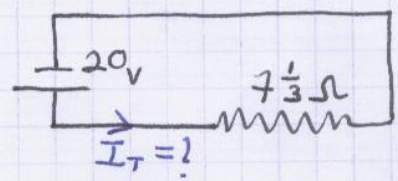 20v
7 1/3 Ω
I_T = ?